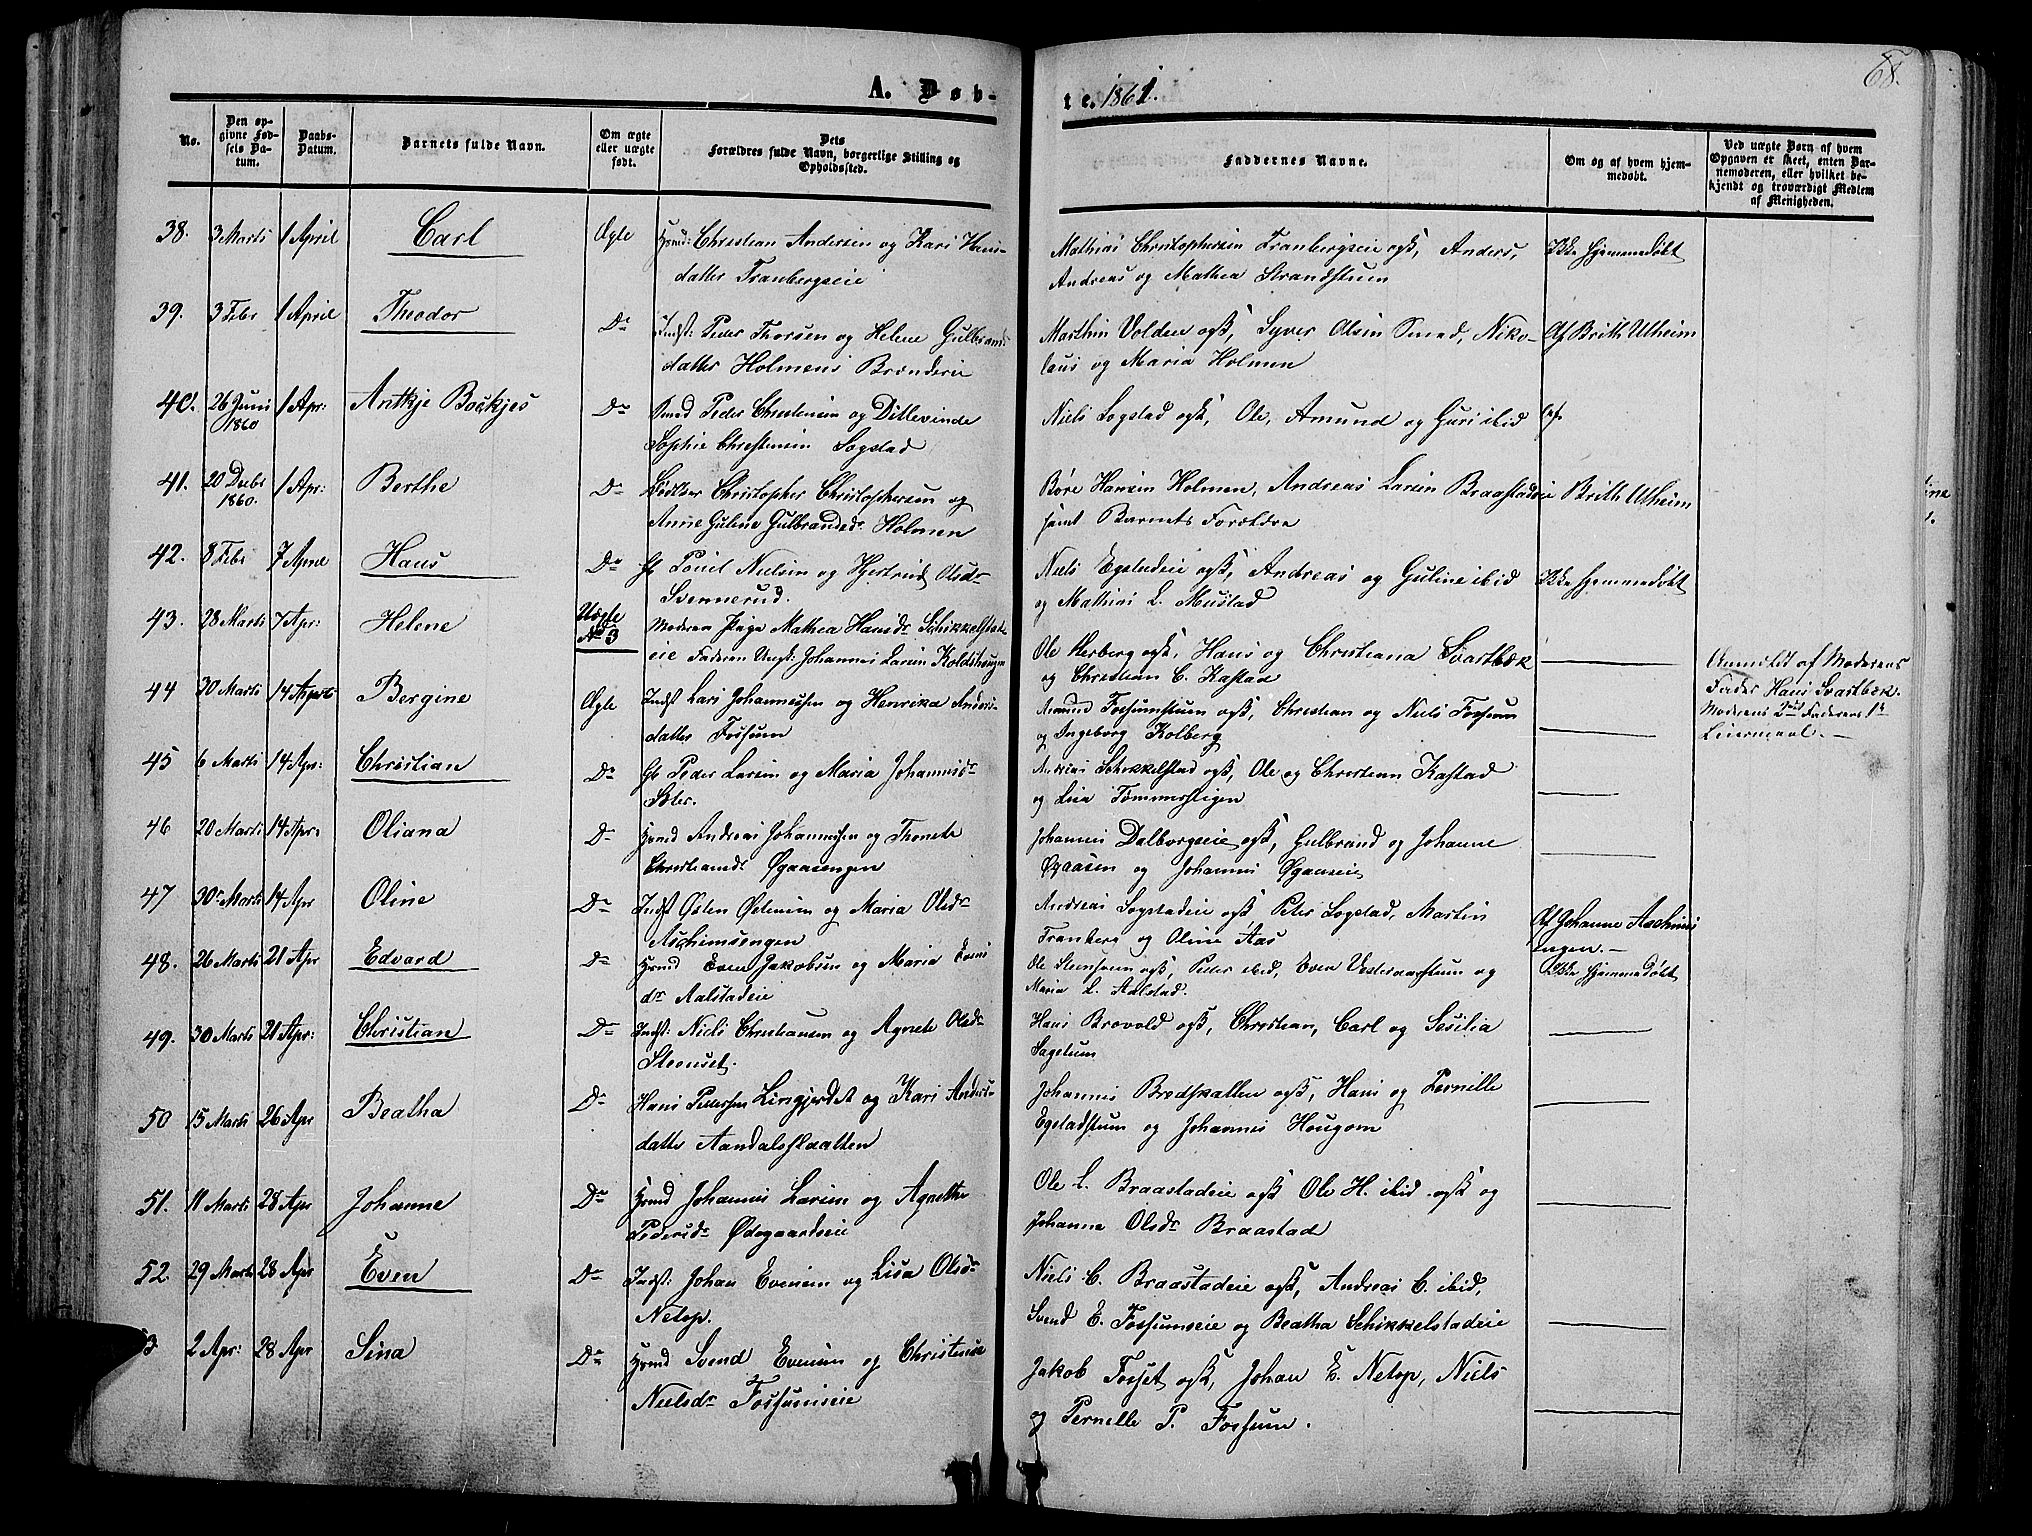 A. Døb-
te. 1861.
68.
No.
Den op-
givne Fød-
sels Da-
tum.
Daabs-
Datum.
Barnets fulde Navn.
Om ægte
eller uægte
født.
Dets
Forældres fulde Navn, borgerlige Stilling og
Opholdssted.
Faddernes Navne.
Om og af hvem hjem-
medøbt.
Ved uægte Børn af hvem
Opgaven er skeet, enten Bar-
nemoderen, eller hvilket be-
kjendt og troværdigt Medlem
af Menigheden.
38. 3 Marts 1 April Carl Ægte Hmd: Christian Andersen og Kari Hans-
datter Tranbergseie
Mathias Christophersen Tranbergseie ogsk, Anders, Ikke hjemmedøbt
Andreas og Mathea Strandstuen
39. 3 Febr 1 April Theodor Do Indst: Peder Thorsen og Helene Gulbrands
datter Holmens Brænderie
Marthin Volden ogsk, Syver Olsen Smed, Niko- Af Brith Ulheim
laus og Maria Holmen
40. 26 Juni 1 Apr: Antkje Bockjes Do Smed Peder Christensen og Ditlevinde
1860
Sophie Christensen Sogstad
Niels Sogstad ogsk, Ole, Amund og Guri ibid
41. 20 Decbr 1 Apr: Berthe Do Christopher Christophersen og
1860.
Anne Guline Gulbrandsdr Holmen
Børe Hansen Holmen, Andreas Larsen Braastadeie Brith Ulheim
samt Barnets Forældre
42. 8 Febr 7 Apr Hans Do G Poul Nielsen og Hjertrud Olsdr
Svennerud.
Niels Egstadeie ogsk, Andreas og Guline ibid Ikke hjemmedøbt
og Mathias L. Mustad
43. 28 Marts 7 Apr: Helene Uægte
No 3
Moderen Pige Mathea Hansdr Schikkelstad
eie Faderen Ungk: Johannes Larsen Koldshaugen
Ole Herberg ogsk, Hans og Christiana Svartbæk
og Christian C. Kastad
Anmeldt af Moderens
Fader Hans Svartbæk.
Moderens 3die Faderens 1te
Leiermaal. —
44 30 Marts 14 Aprl Bergine Ægte Indst Lars Johannessen og Henrika Anders-
datter Fossum
Amund Fossumstuen ogsk, Christian og Niels Fossum
og Ingeborg Kolberg
45 6 Marts 14 Apr: Christian Do G Peder Larsen og Maria Johannisdr
Soler.
Andreas Schikkelstad ogsk, Ole og Christian Kastad
og Lisa Tømmerstigen
46 20 Marts 14 Apr. Oliana Do Hmd Andreas Johannessen og Thonete
Christiansdr Øgaasengen
Johannes Dalborgseie ogsk, Gulbrand og Johanne
Øgaasen og Johannes Øgaaseie
47 30 Marts 14 Apr Oline Do Indst Østen Østensen og Maria Olsdr
Aschimsengen
Andreas Sogstadeie ogsk Peter Sogstad, Martin Af Johanne Aschims
Tranberg og Oline Aas engen. —
48. 26 Marts 21 Apr Edvard Do Hmd Even Jakobsen og Maria Evens
dr Aalstadeie
Ole Stensveen ogsk, Peter ibid, Even Vesteraasstuen og Ikke hjemmedøbt
Maria L. Aalstad.
49. 30 Marts 21 Apr: Christian Do Indst: Niels Christiansen og Agnete Olsdr
Steenset.
Hans Brovold ogsk, Christian, Carl og Sesilia
Sagstuen
50 15 Marts 26 Apr Beatha Do Hans Pedersen Lingjerdet og Kari Anders-
datter Aandalsslaatten
Johannes Bredskallen ogsk, Hans og Pernille
Egstadstuen og Johannes Hougom
51. 11 Marts 28 Apr Johanne Do Hmd Johannes Larsen og Agnethe
Pedersdr Ødegaardseie
Ole L. Braastadeie ogsk Ole H. ibid ogsk og
Johanna Olsdr Braastad
52. 29 Marts 28 Apr Even Do Indst: Johan Evensen og Lisa Olsdr
Netop.
Niels C. Braastadeie ogsk, Andreas C. ibid,
Svend E. Fossumseie og Beatha Schikkelstadeie
3 2 Apr: 28 Apr Sina Do Hmd Svend Evensen og Christense
Nielsdr Fossumseie
Jakob Fosset ogsk, Johan E. Netop, Niels
og Pernille P. Fossum.